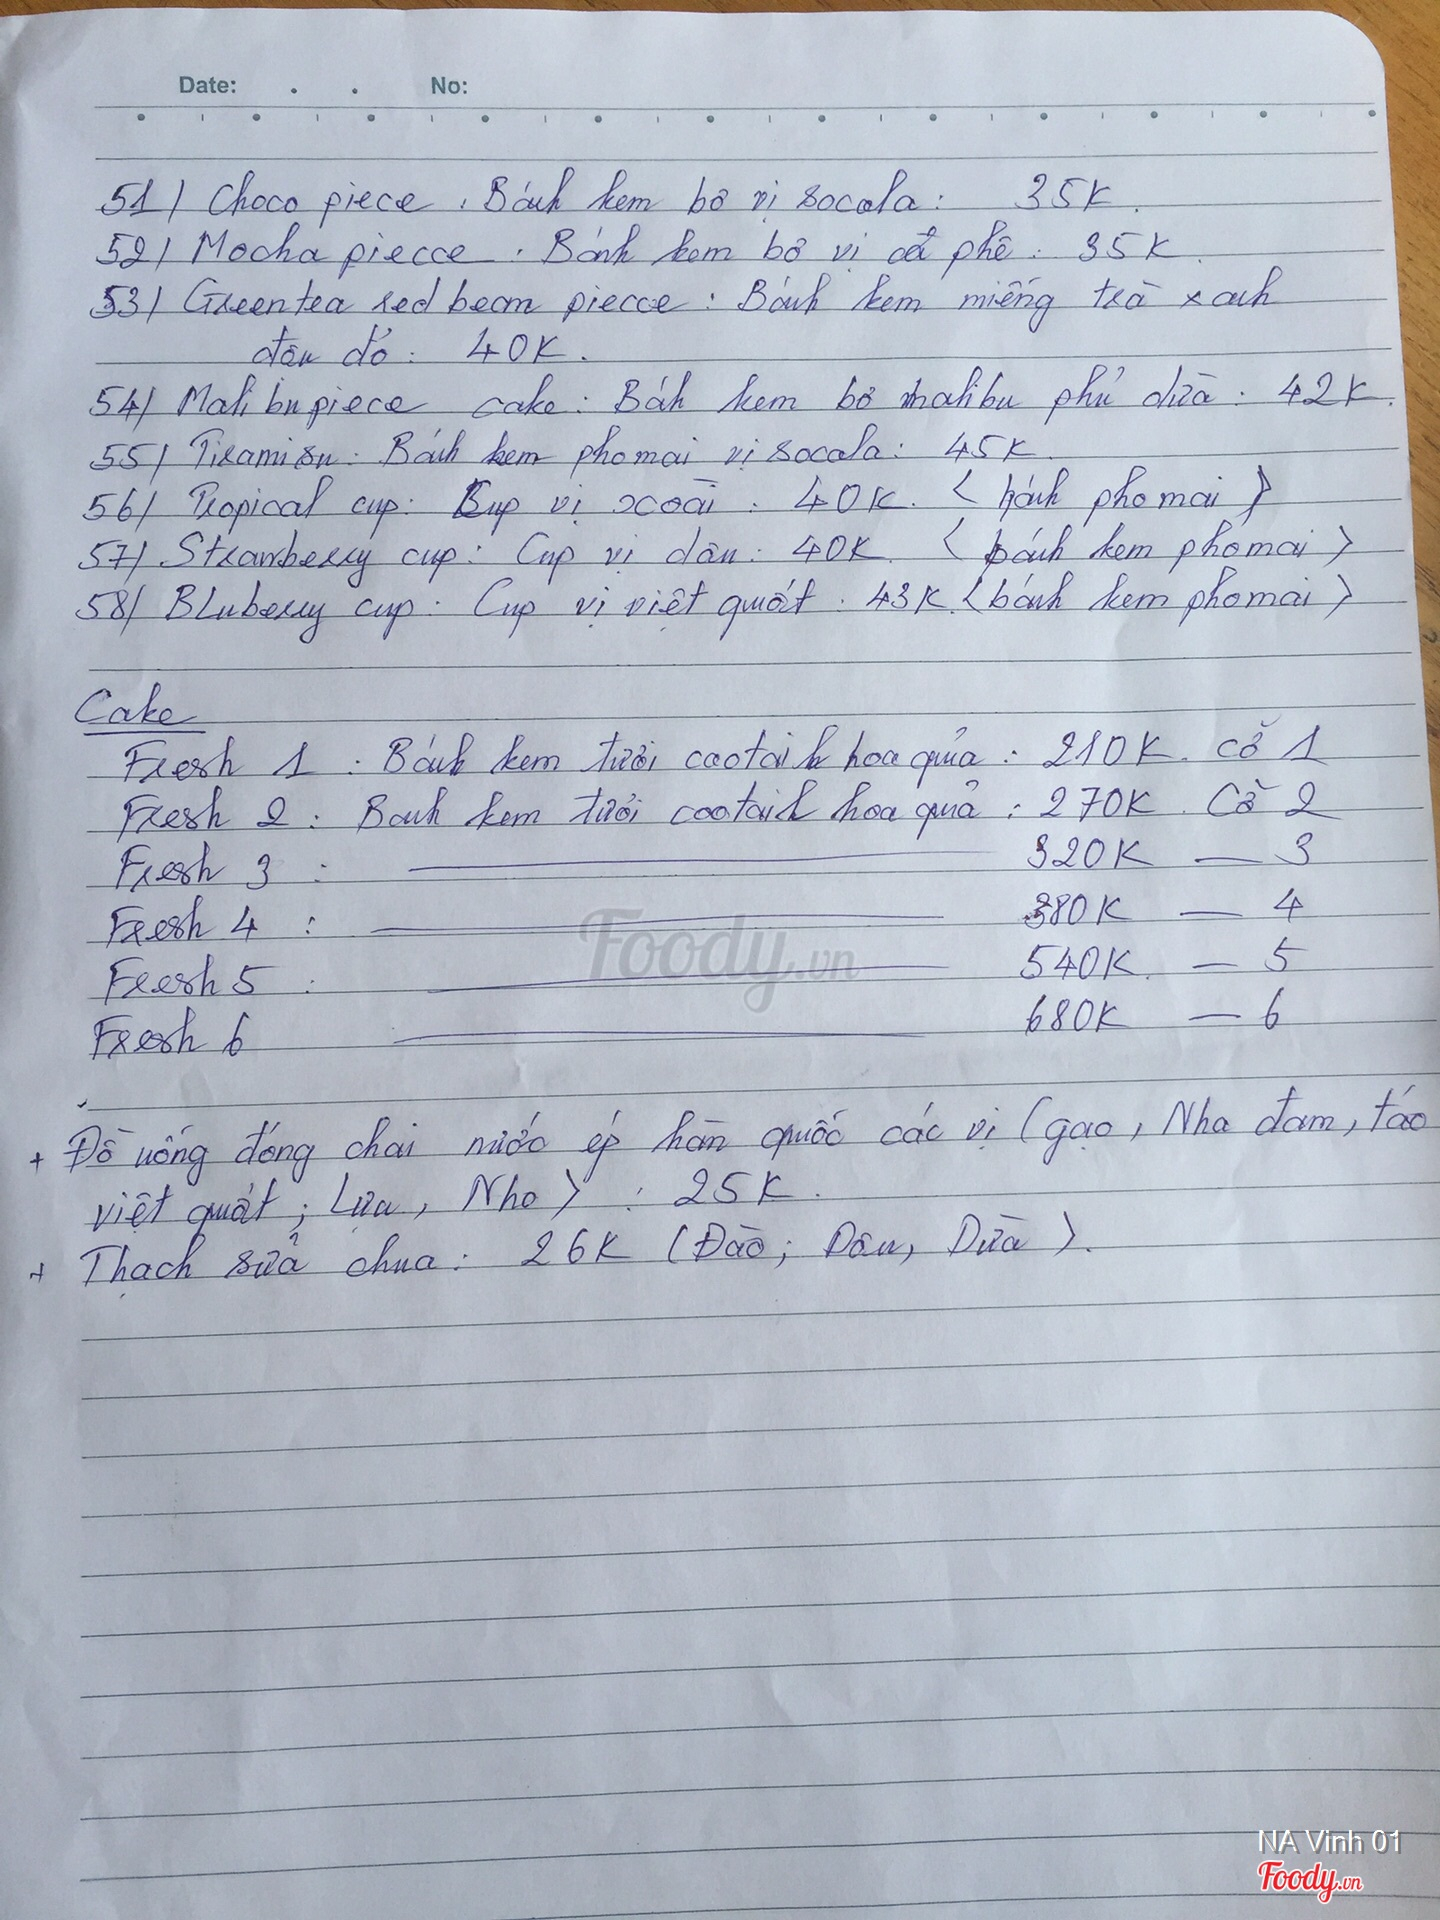 Date: . . No:
51/ Choco piece . Bánh kem bơ vị socola : 35K.
52/ Mocha piecce . Bánh kem bơ vị cà phê : 35K.
53/ Greentea red bean piecce : Bánh kem miếng trà xanh
đậu đỏ : 40K.
54/ Malibu piece cake : Báh kem bơ malibu phủ dừa : 42K.
55/ Tiramisu : Bánh kem phomai vị socola : 45K.
56/ Tropical cup : Cup vị xoài : 40K. (bánh phomai)
57/ Strawberry cup : Cup vị dâu : 40K. (bánh kem phomai)
58/ BLuberry cup . Cup vị việt quất . 43K. (bánh kem phomai)
Cake
Fresh 1 : Bánh kem tươi cooctail hoa quả : 210K. Cỡ 1
Fresh 2 : Banh kem tươi cooctail hoa quả : 270K. Cỡ 2
Fresh 3 : — 320K — 3
Fresh 4 : — 380K — 4
Fresh 5 : — 540K. — 5
Fresh 6 — 680K — 6
+ Đồ uống đóng chai nước ép hàn quốc các vị (gạo, Nha đam, táo
việt quất; Lựu, Nho) : 25K.
+ Thạch sữa chua : 26K (Đào; Dâu, Dừa).
Foody.vn
NA Vinh 01
Foody.vn